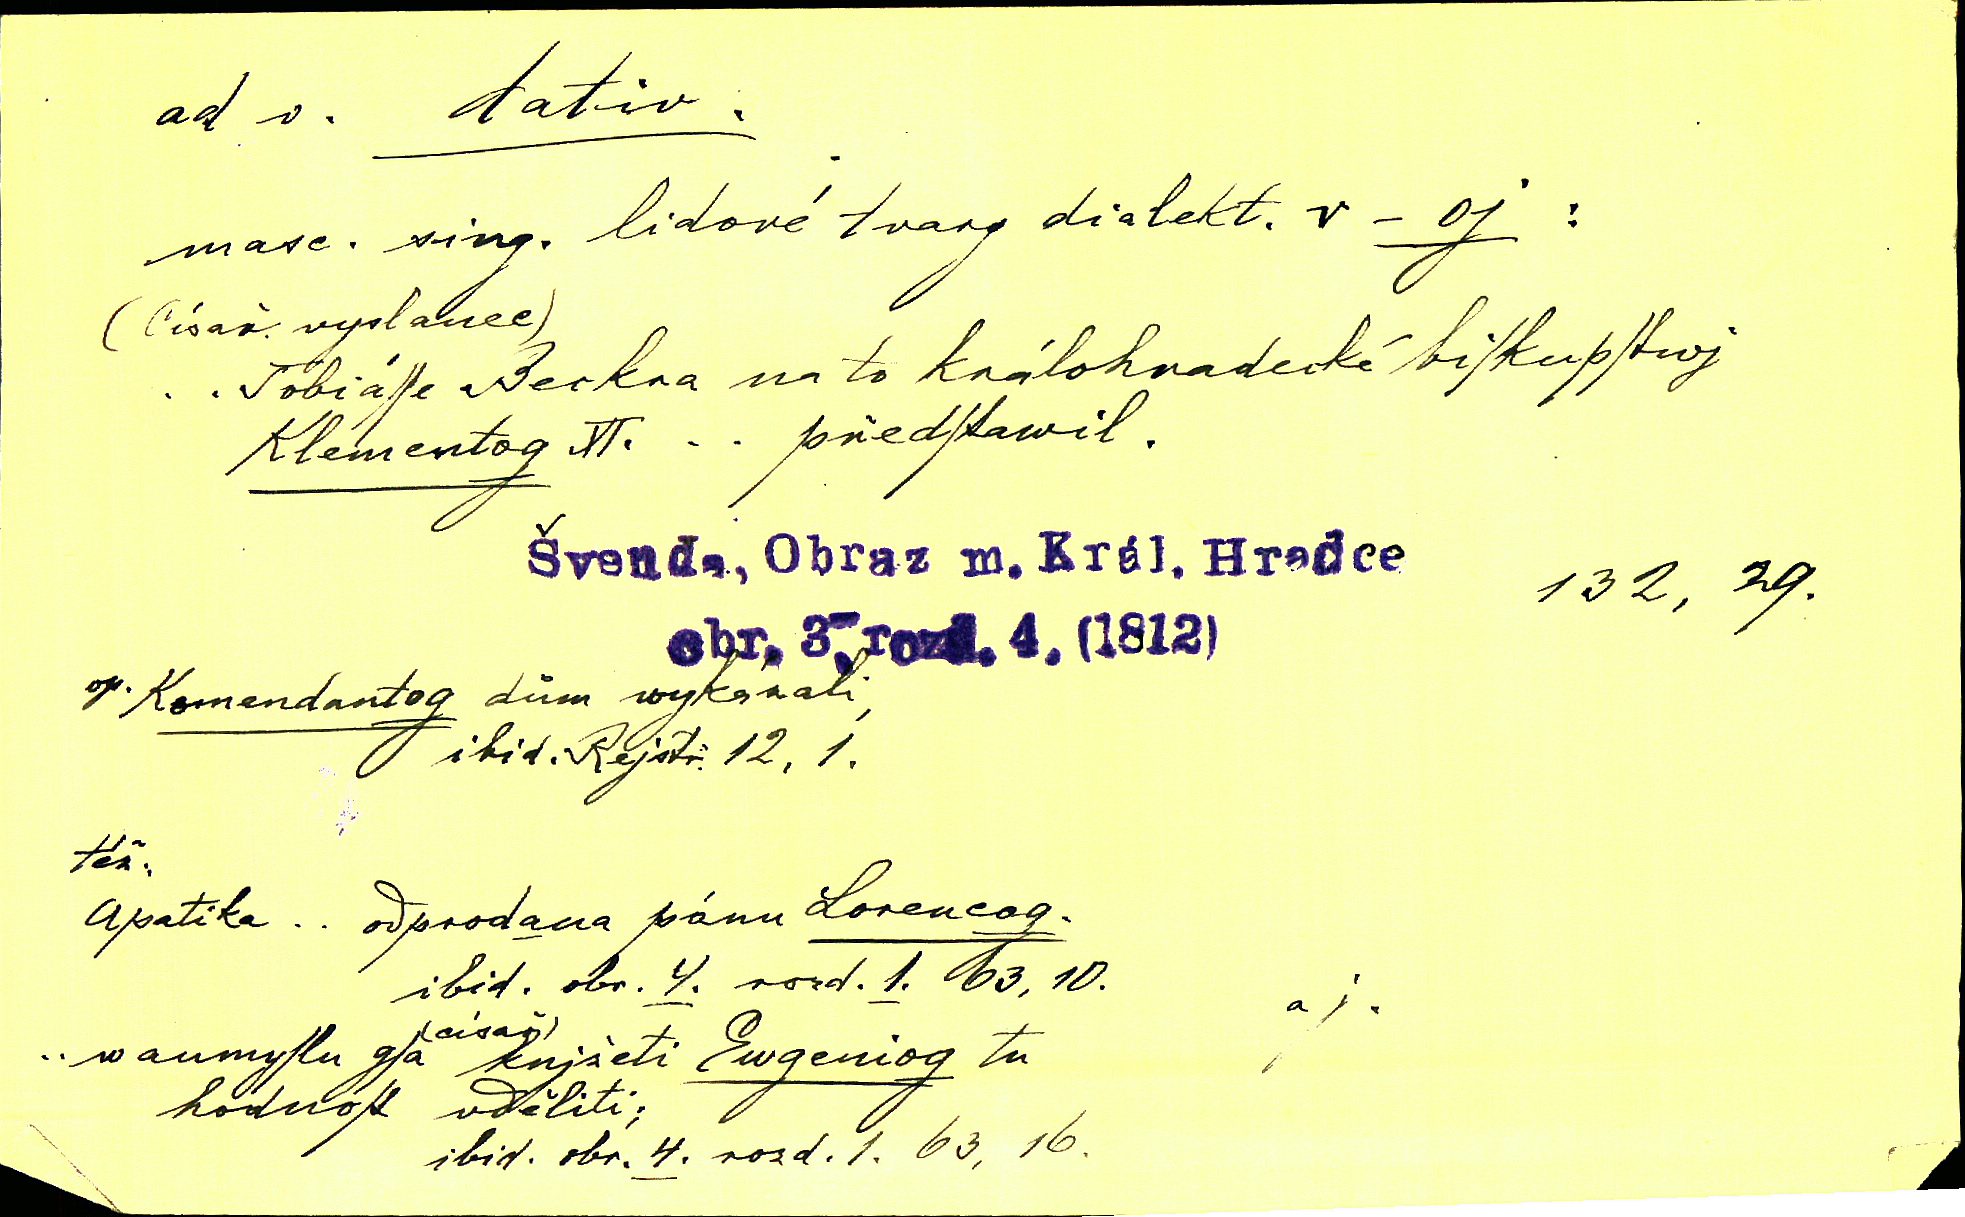 ad v. dativ.
masc. sing. lidové tvary dialekt. v – oj :
(Císař. vyslanec)
. . Tobiáſſe Beckra na to králohradecké biſkupſtwj
Klementog XI. . . předſtawil.
Švenda, Obraz m. Král. Hradce
132, 29.
obr. 3, rozd. 4. (1812)
op. Komendantog dům wykázali,
ibid. Rejstř. 12, 1.
též.
Apatika . . odprodana pánu Lorencog.
ibid. obr. 4. rozd. 1. 63, 10.
a j.
(císař)
.. w aumyſlu gſa knjžeti Ewgeniog tu
hodnoſt vděliti;
ibid. obr. 4. rozd. 1. 63, 16.